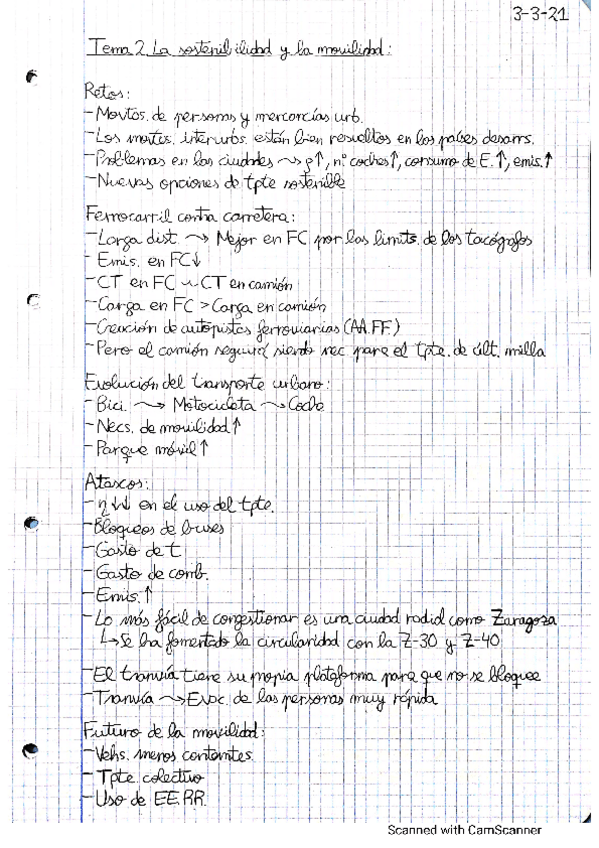 3-3-21
Tema 2 La sostenibilidad y la movilidad:
Retos:
- Movtos. de personas y mercancías urb.
- Los movtos. interurbs. están bien resueltos en los países desarrs.
- Problemas en las ciudades ⇝ ρ↑, nº coches↑, consumo de E.↑, emis.↑
- Nuevas opciones de tpte sostenible
Ferrocarril contra carretera:
- Larga dist. ⇝ Mejor en FC por las limits. de los tacógrafos
- Emis. en FC↓
- CT en FC ~ CT en camión
- Carga en FC > Carga en camión
- Creación de autopistas ferroviarias (AA.FF.)
- Pero el camión seguirá siendo nec. para el tpte. de últ. milla
Evolución del transporte urbano:
- Bici. ⇝ Motocicleta ⇝ Coche
- Necs. de movilidad↑
- Parque móvil↑
Atascos:
- η↓↓ en el uso del tpte.
- Bloqueos de buses
- Gasto de t
- Gasto de comb.
- Emis.↑
- Lo más fácil de congestionar es una ciudad radial como Zaragoza
↳ Se ha fomentado la circularidad con la Z-30 y Z-40
- El tranvía tiene su propia plataforma para que no se bloquee
- Tranvía ⇝ Evac. de las personas muy rápida
Futuro de la movilidad:
- Vehs. menos contantes.
- Tpte. colectivo
- Uso de EE.RR.
Scanned with CamScanner